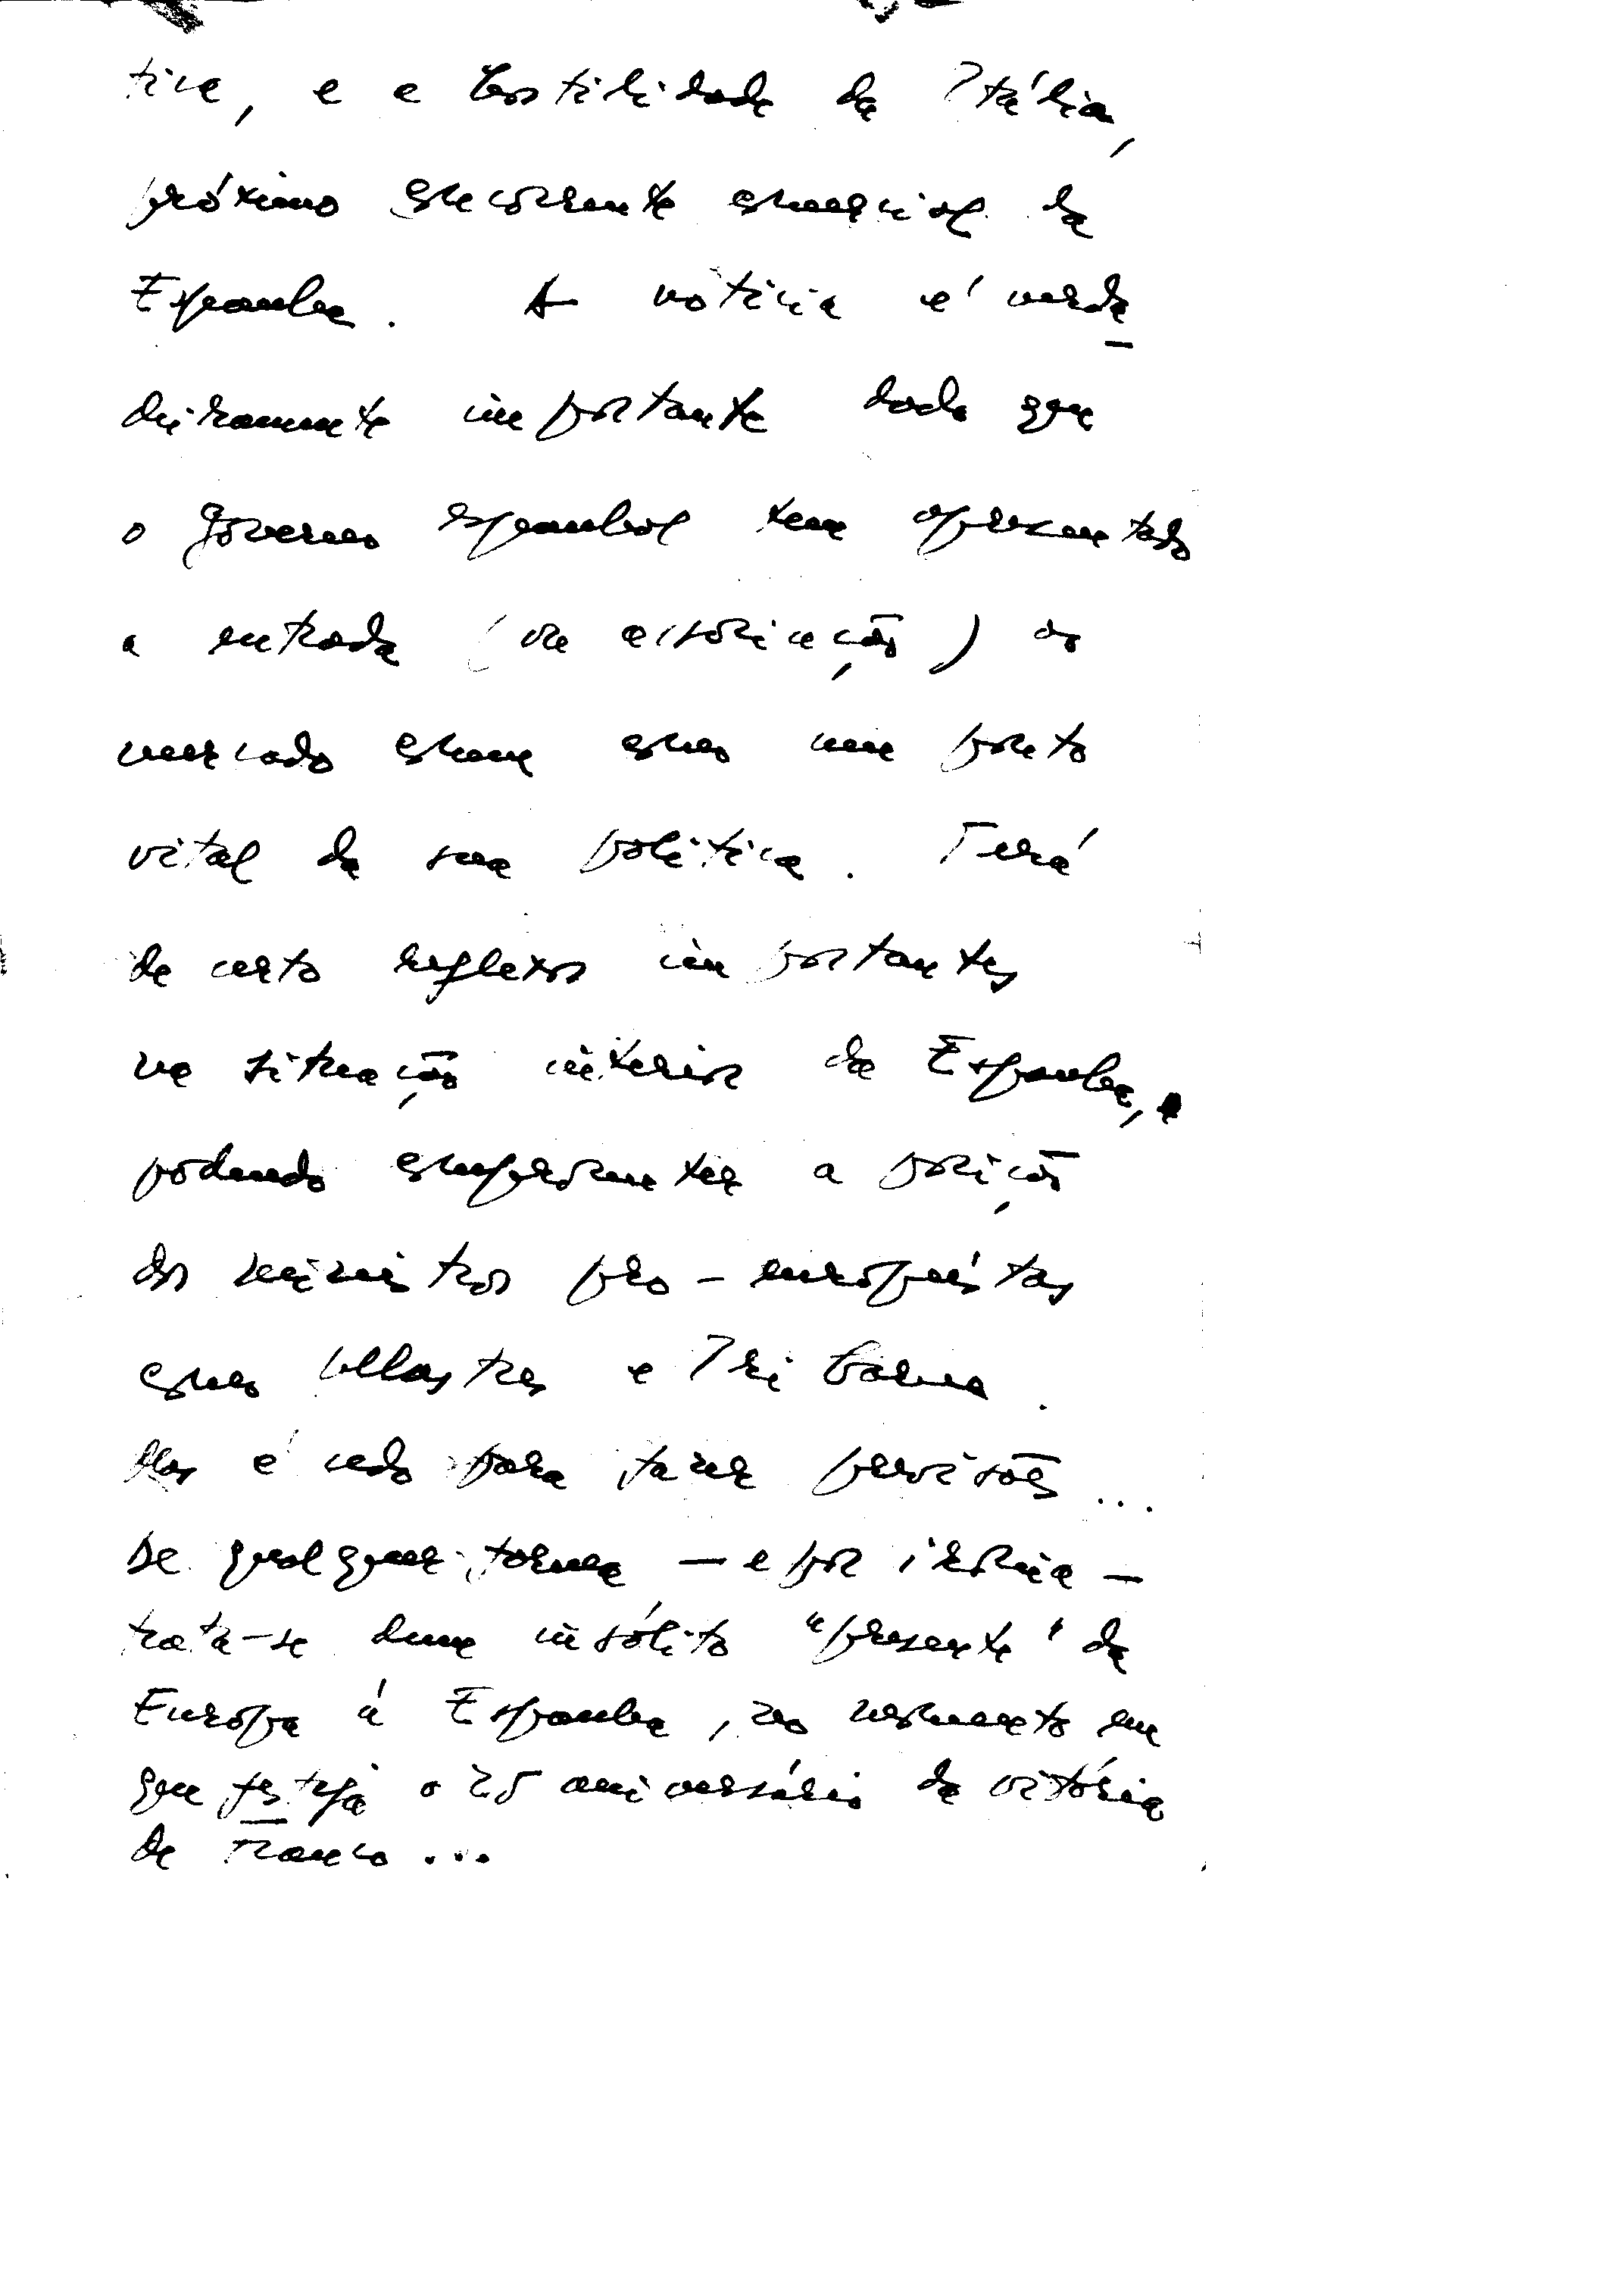 tica, e a hostilidade da Itália,
próximo concorrente comercial da
Espanha. A notícia é verda-
deiramente importante dado que
o governo espanhol tem apresentado
a entrada (ou associação) ao
mercado comum como um ponto
vital da sua política. Terá
de certo reflexos importantes
na situação interior da Espanha,
podendo comprometer a posição
dos ministros pro-europeistas
como Ullastres e Iribarne.
Mas é cedo para fazer previsões...
De qualquer forma — e por ironia —
trata-se dum insólito "presente" da
Europa à Espanha, no momento em
que festeja o 25 aniversário da vitória
de Franco...